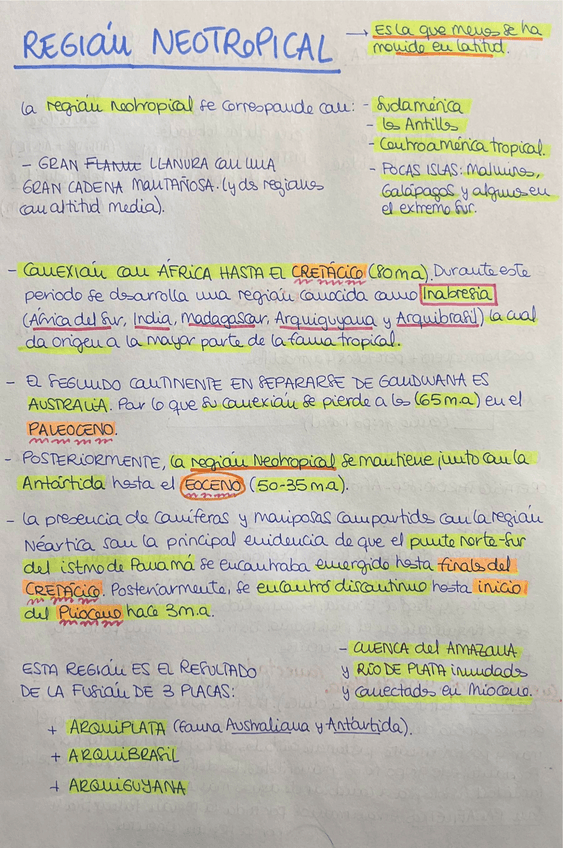 REGIÓN NEOTROPICAL
→ Es la que menos se ha
movido en latitud.
La región neotropical se corresponde con:
- Sudamérica
- las Antillas
- Centroamérica tropical.
- POCAS ISLAS: Malvinas,
Galápagos y algunos en
el extremo sur.
- GRAN LLANURA CON UNA
GRAN CADENA MONTAÑOSA. (y de regiones
con altitud media).
- CONEXIÓN CON ÁFRICA HASTA EL CRETÁCICO (80ma). Durante este
periodo se desarrolla una región conocida como Inabresia
(África del Sur, India, Madagascar, Arquiguyana y Arquibrasil) la cual
da origen a la mayor parte de la fauna tropical.
- EL SEGUNDO CONTINENTE EN SEPARARSE DE GONDWANA ES
AUSTRALIA. Por lo que su conexión se pierde a los (65m.a) en el
PALEOCENO.
- POSTERIORMENTE, la región Neotropical se mantiene junto con la
Antártida hasta el EOCENO (50-35m.a).
- La presencia de coníferas y mariposas compartidas con la región
Neártica son la principal evidencia de que el puente norte-sur
del istmo de Panamá se encontraba emergido hasta finales del
CRETÁCICO. Posteriormente, se encontró discontinuo hasta inicio
del Plioceno hace 3m.a.
- CUENCA del AMAZONA
y RÍO DE PLATA inundadas
y conectadas en Mioceno.
ESTA REGIÓN ES EL RESULTADO
DE LA FUSIÓN DE 3 PLACAS:
+ ARQUIPLATA (fauna Australiana y Antártida).
+ ARQUIBRASIL
+ ARQUIGUYANA